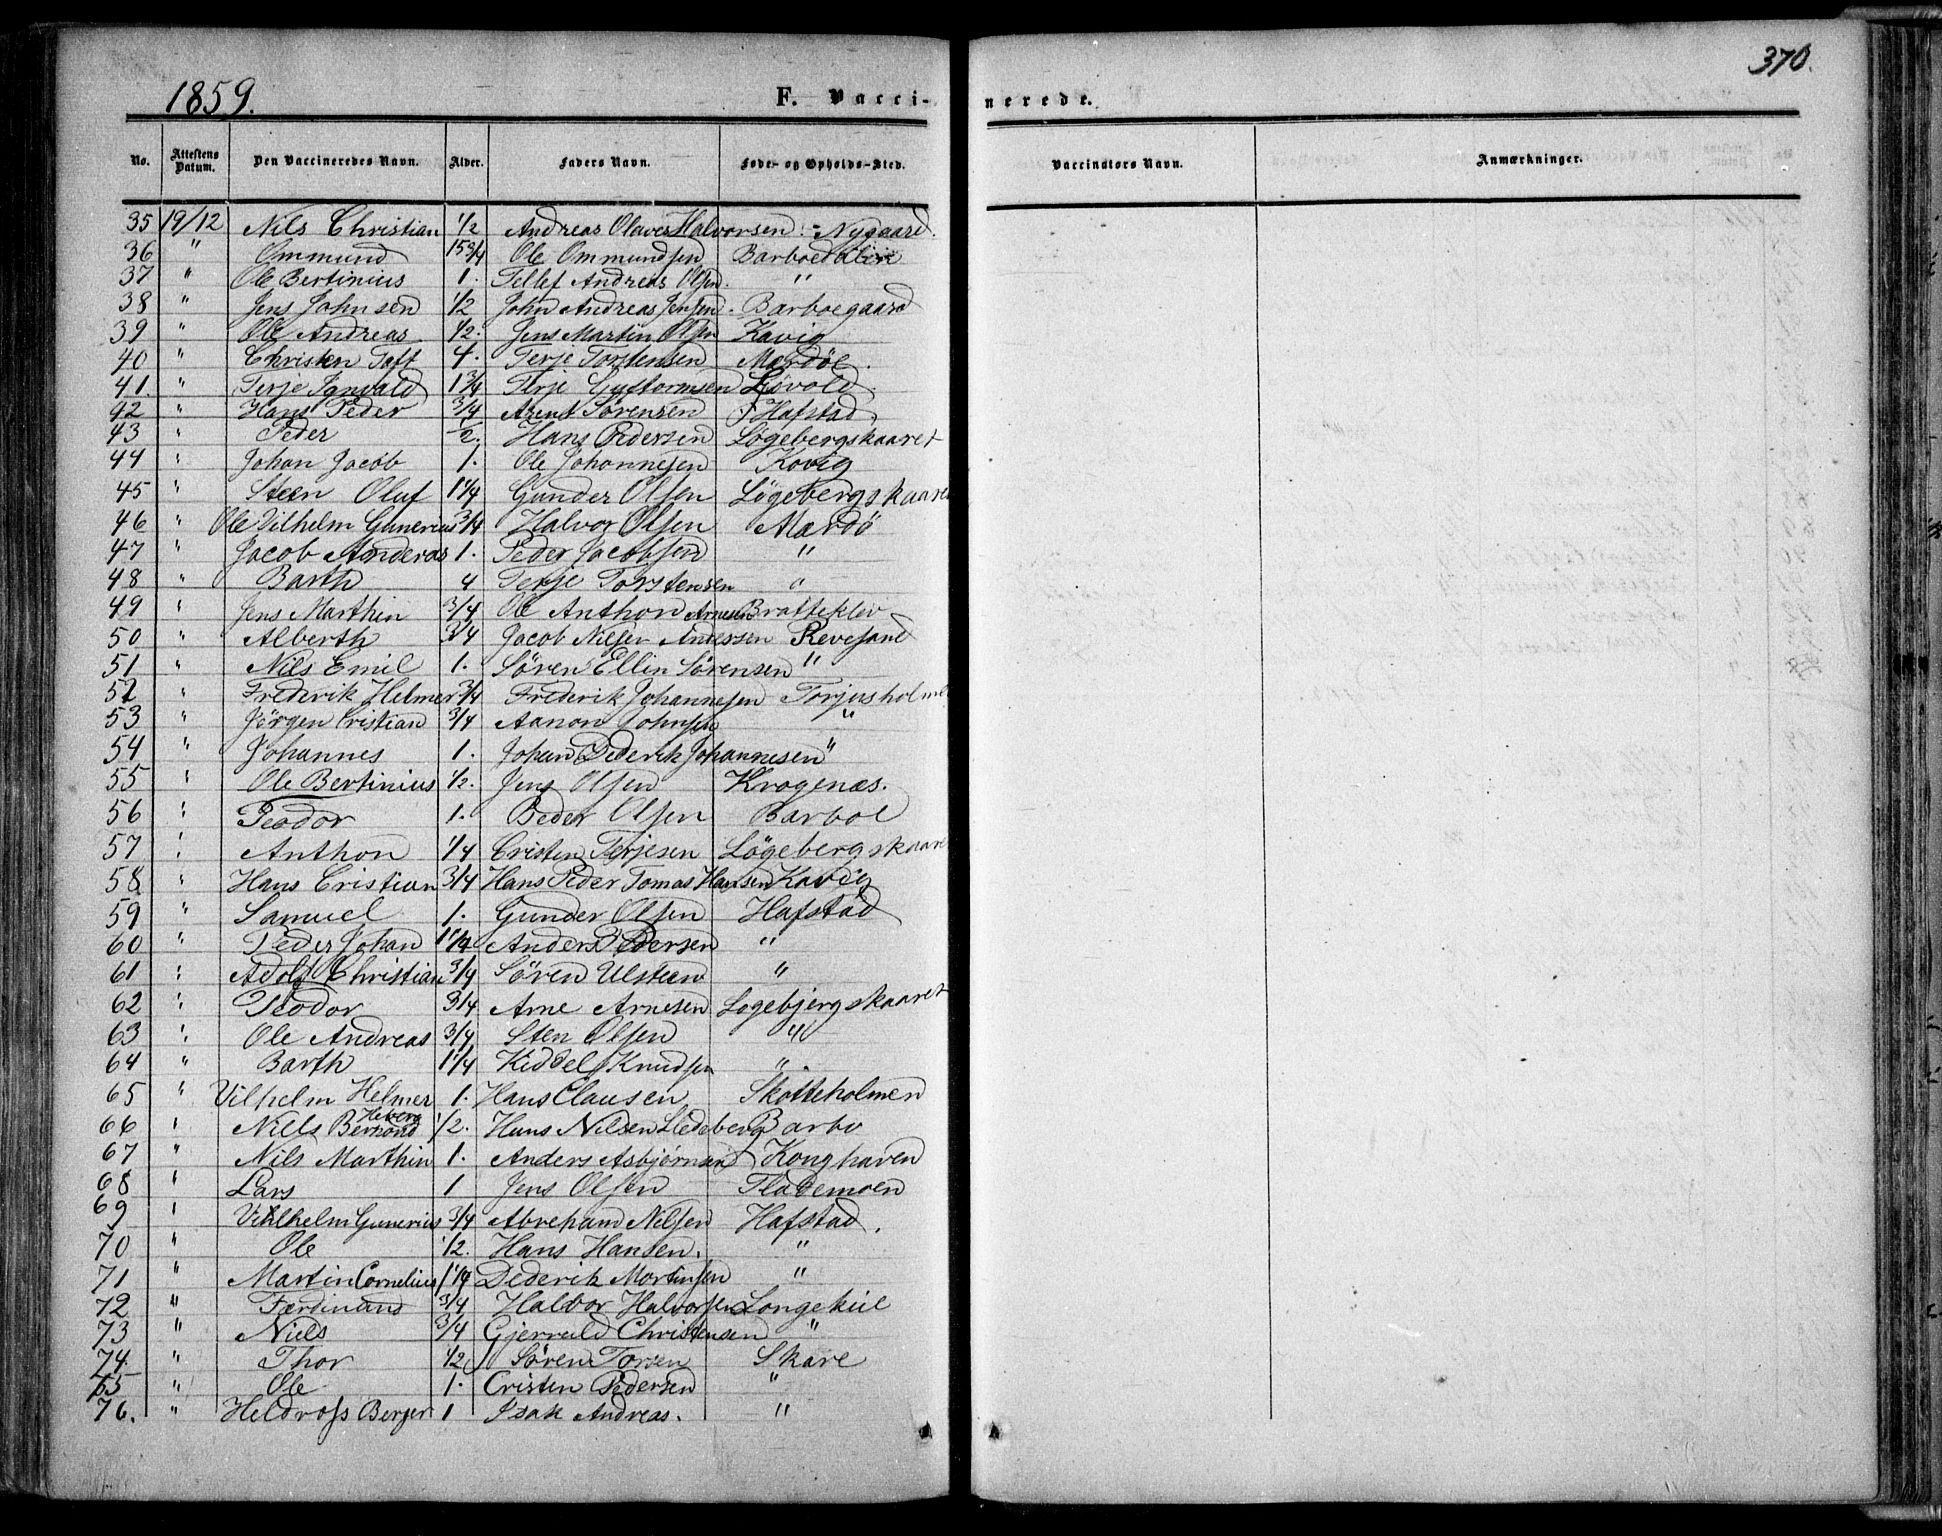 370.
1859.
F. Vaccinerede.
No. Attestens Datum. Den Vaccineredes Navn. Alder. Faders Navn. Føde- og Opholds-Sted. Vaccinators Navn. Anmærkninger.
35 19/12 Nils Christian 1/2 Andreas Olaves Halvorsen - Nygaard.
36 " Ommund 15 3/4 Ole Ommundsen
37 " Ole Bertinius 1. Tellef Andreas Olsen. "
38 " Jens Johnsen 1/2 John Andreas Jensen. Barboegaard
39 " Ole Andreas 1/2. Jens Martin Olsen Kavig
40 " Christen Toft 4. Terje Torstensen Mærdöe.
41. " Terje Ignvald 1 3/4 Terje Guttormsen Lövold.
42 " Hans Peder 3/4 Arent Sørensen Hafstad.
43 " Peder 1/2. Hans Pedersen Løgebergskaaret
44 " Johan Jacob 1. Ole Johannesen Kovig
45 " Steen Oluf 1 1/4 Gunder Olsen Løgebergskaaret
46 " Ole Vilhelm Gunerius 3/4 Halvor Olsen Mærdö
47 " Jacob Anderas 1. Peder Jacobsen "
48 " Barth 4 Terje Torstensen "
49 " Jens Marthin 3/4 Ole Anthon Arnesen Bratteklev
50 " Alberth 3/4 Jacob Nilsen Andersen Revesand
51 " Nils Emil 1. Søren Ellin Sørensen "
52 " Frederik Helmer 3/4 Frederik Johannesen Torjusholmen
53 " Jørgen Cristian 3/4 Aanon Johnsen "
54 " Johannes 1. Johan Dederik Johannesen "
55 " Ole Bertinius 1/2. Jens Olsen Krogenæs.
56 " Teodor 1. Peder Olsen Barboe
57 " Anthon 1/4 Cristen Terjesen Løgebergskaare
58 " Hans Cristian 3/4 Hans Peder Tomas Hansen Kavig
59 " Samuel 1. Gunder Olsen Hafstad
60 " Peder Johan 1 1/4 Anders Pedersen "
61 " Adolf Christian 3/4 Søren Ulsteen "
62 " Teodor 3/4 Arne Arnesen Logebjergskaaret
63 " Ole Andreas 3/4 Sten Olsen "
64 " Barth 1 1/4 Kiddel Knudsen "
65 " Vilhelm Helmer 1. Hans Clausen Skotteholmen
66 " Niels Bernond Heberg 1/2. Hans Nilsen Ledeberg Barbo
67 " Nils Marthin 1. Anders Asbjørnsen Konghaven
68 " Lars 1 Jens Olsen Flademoen
69 " Vilhelm Gunerius 3/4 Abreham Nilsen Hafstad.
70 " Ole 1/2. Hans Hansen. "
71 " Martin Cornelius 1 1/4 Dederik Mortensen "
72 " Færdinand 3/4 Halvor Halvorsen Longekiil
73 " Niels 3/4 Gjervuld Christensen "
74 " Thor 1/2 Søren Torsen Skare
75 " Ole 1. Cristen Pedersen "
76. " Heldross Berger 1 Isak Andreas. "